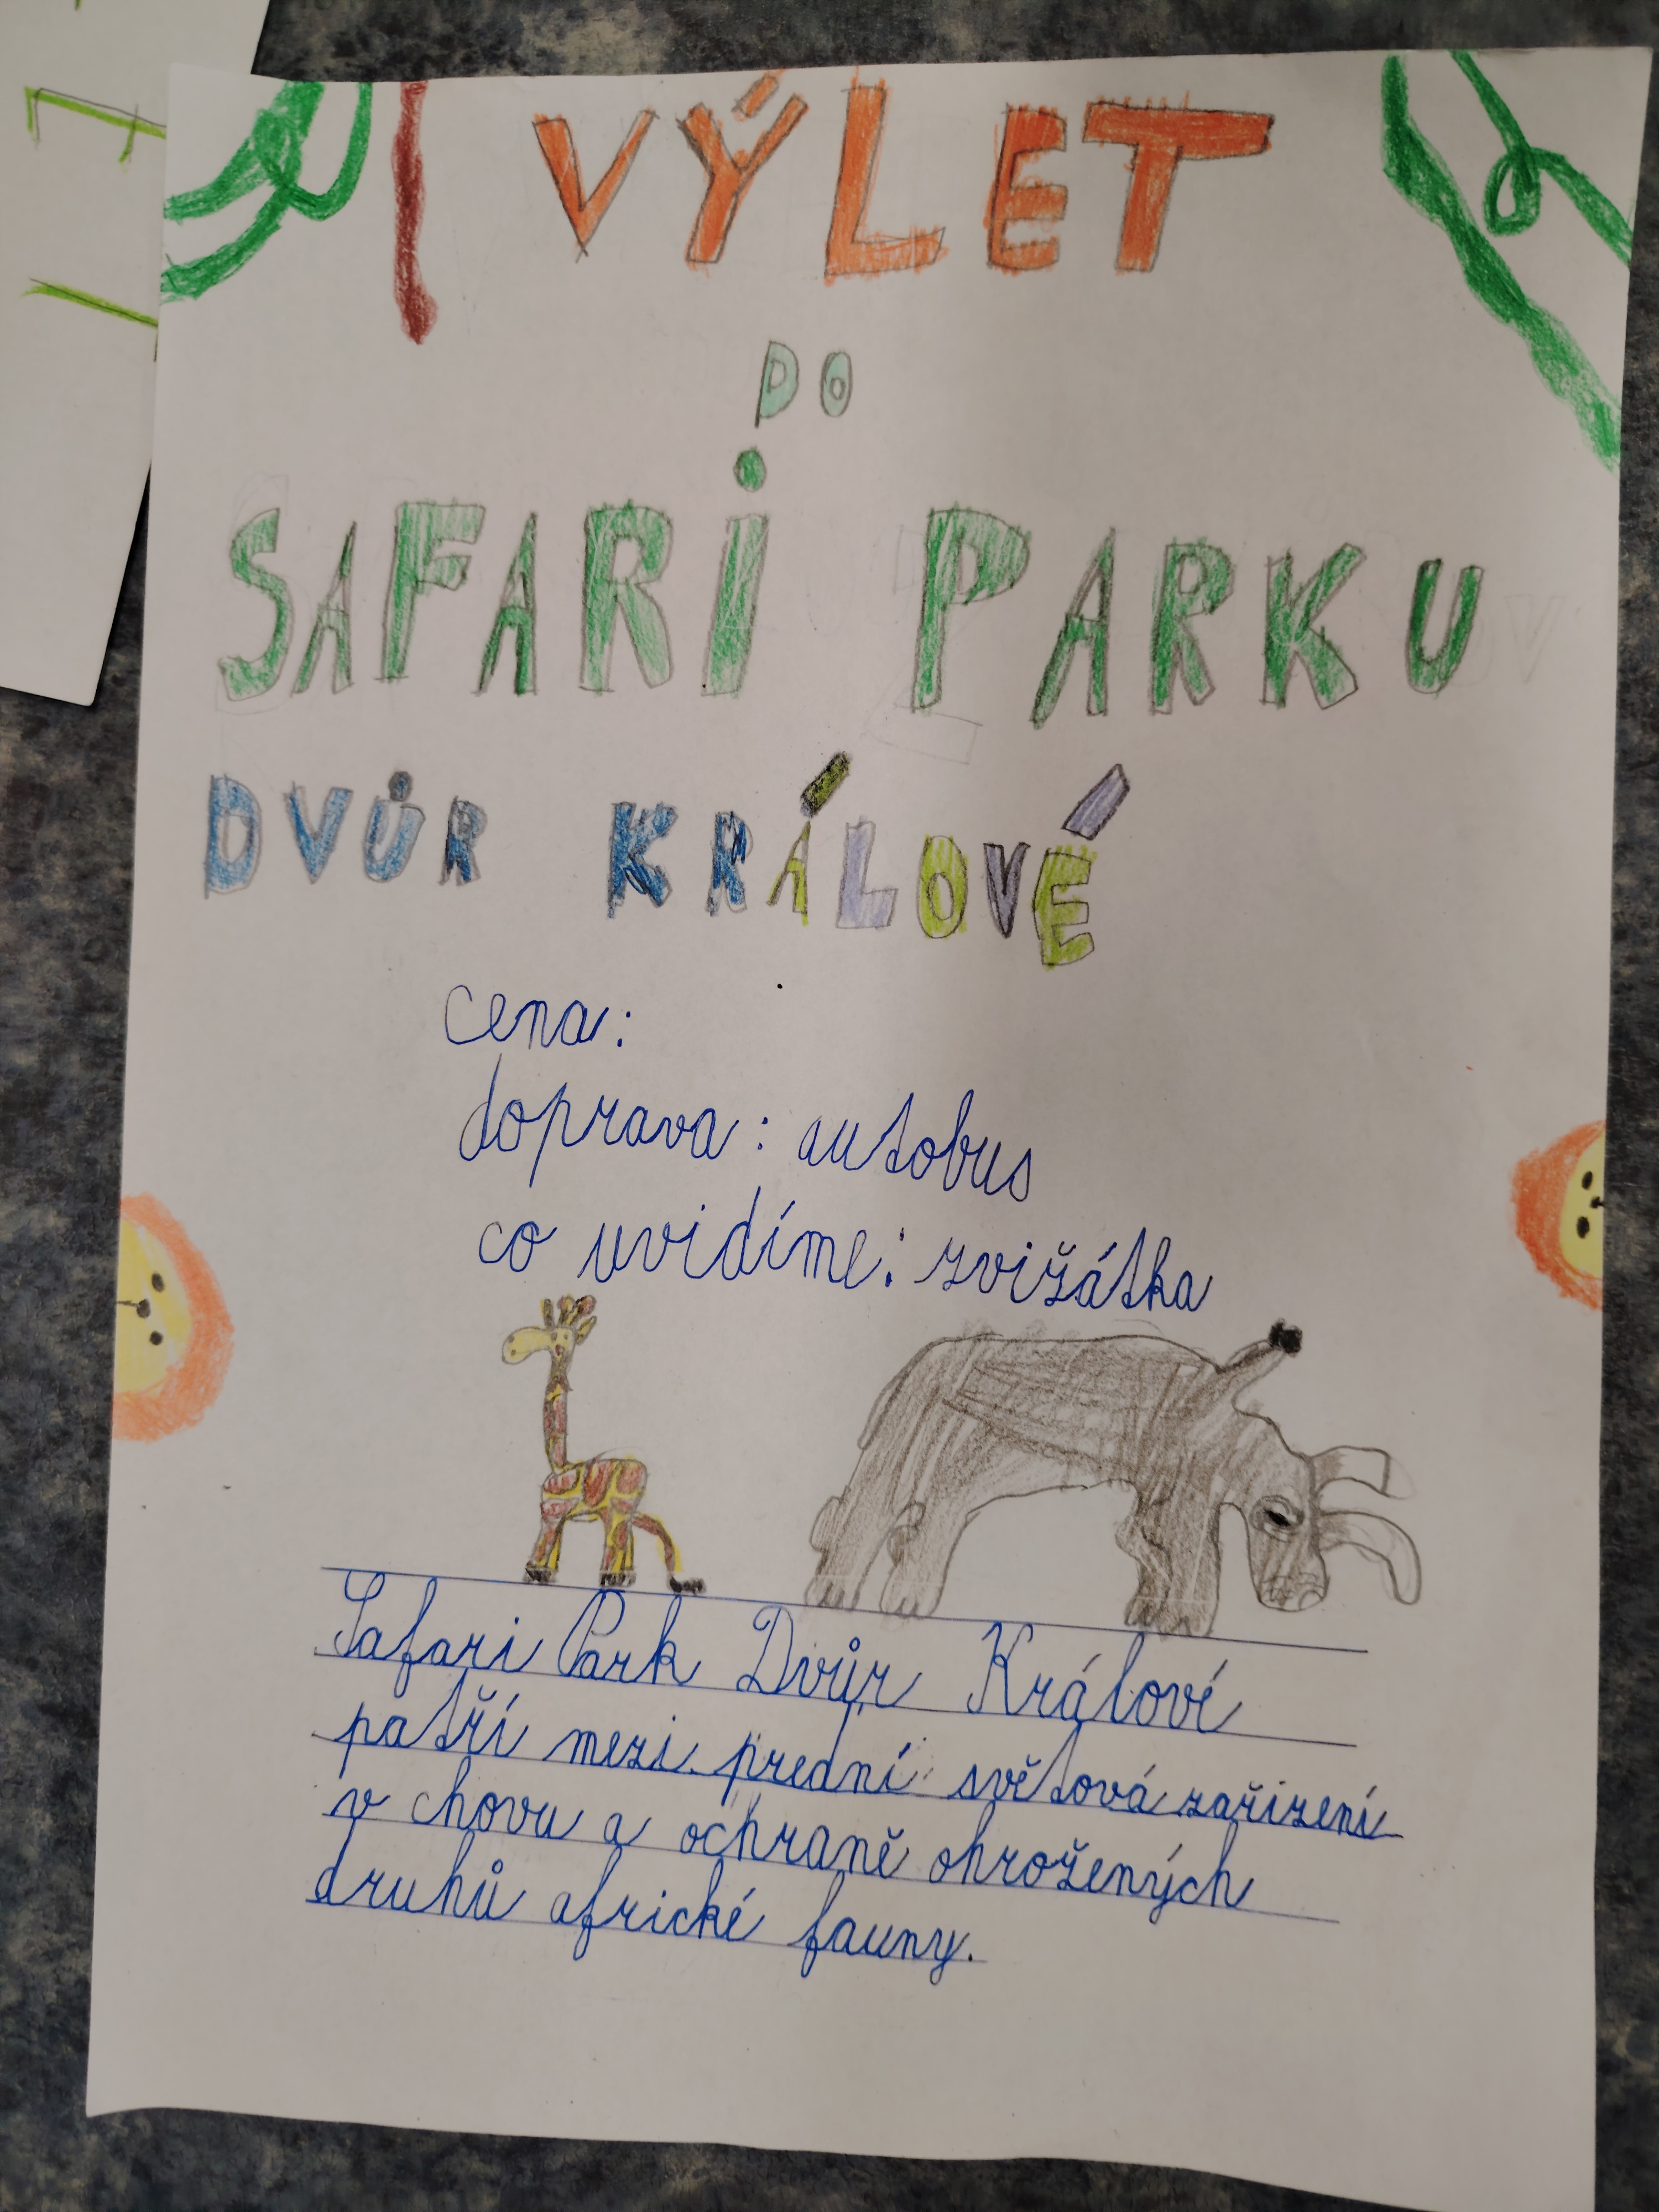 VÝLET
DO
SAFARI PARKU
DVŮR KRÁLOVÉ
cena:
doprava: autobus
co uvidíme: zvižátka
Safari Park Dvůr Králové
patří mezi přední světová zařízení
v chovu a ochraně ohrožených
druhů africké fauny.